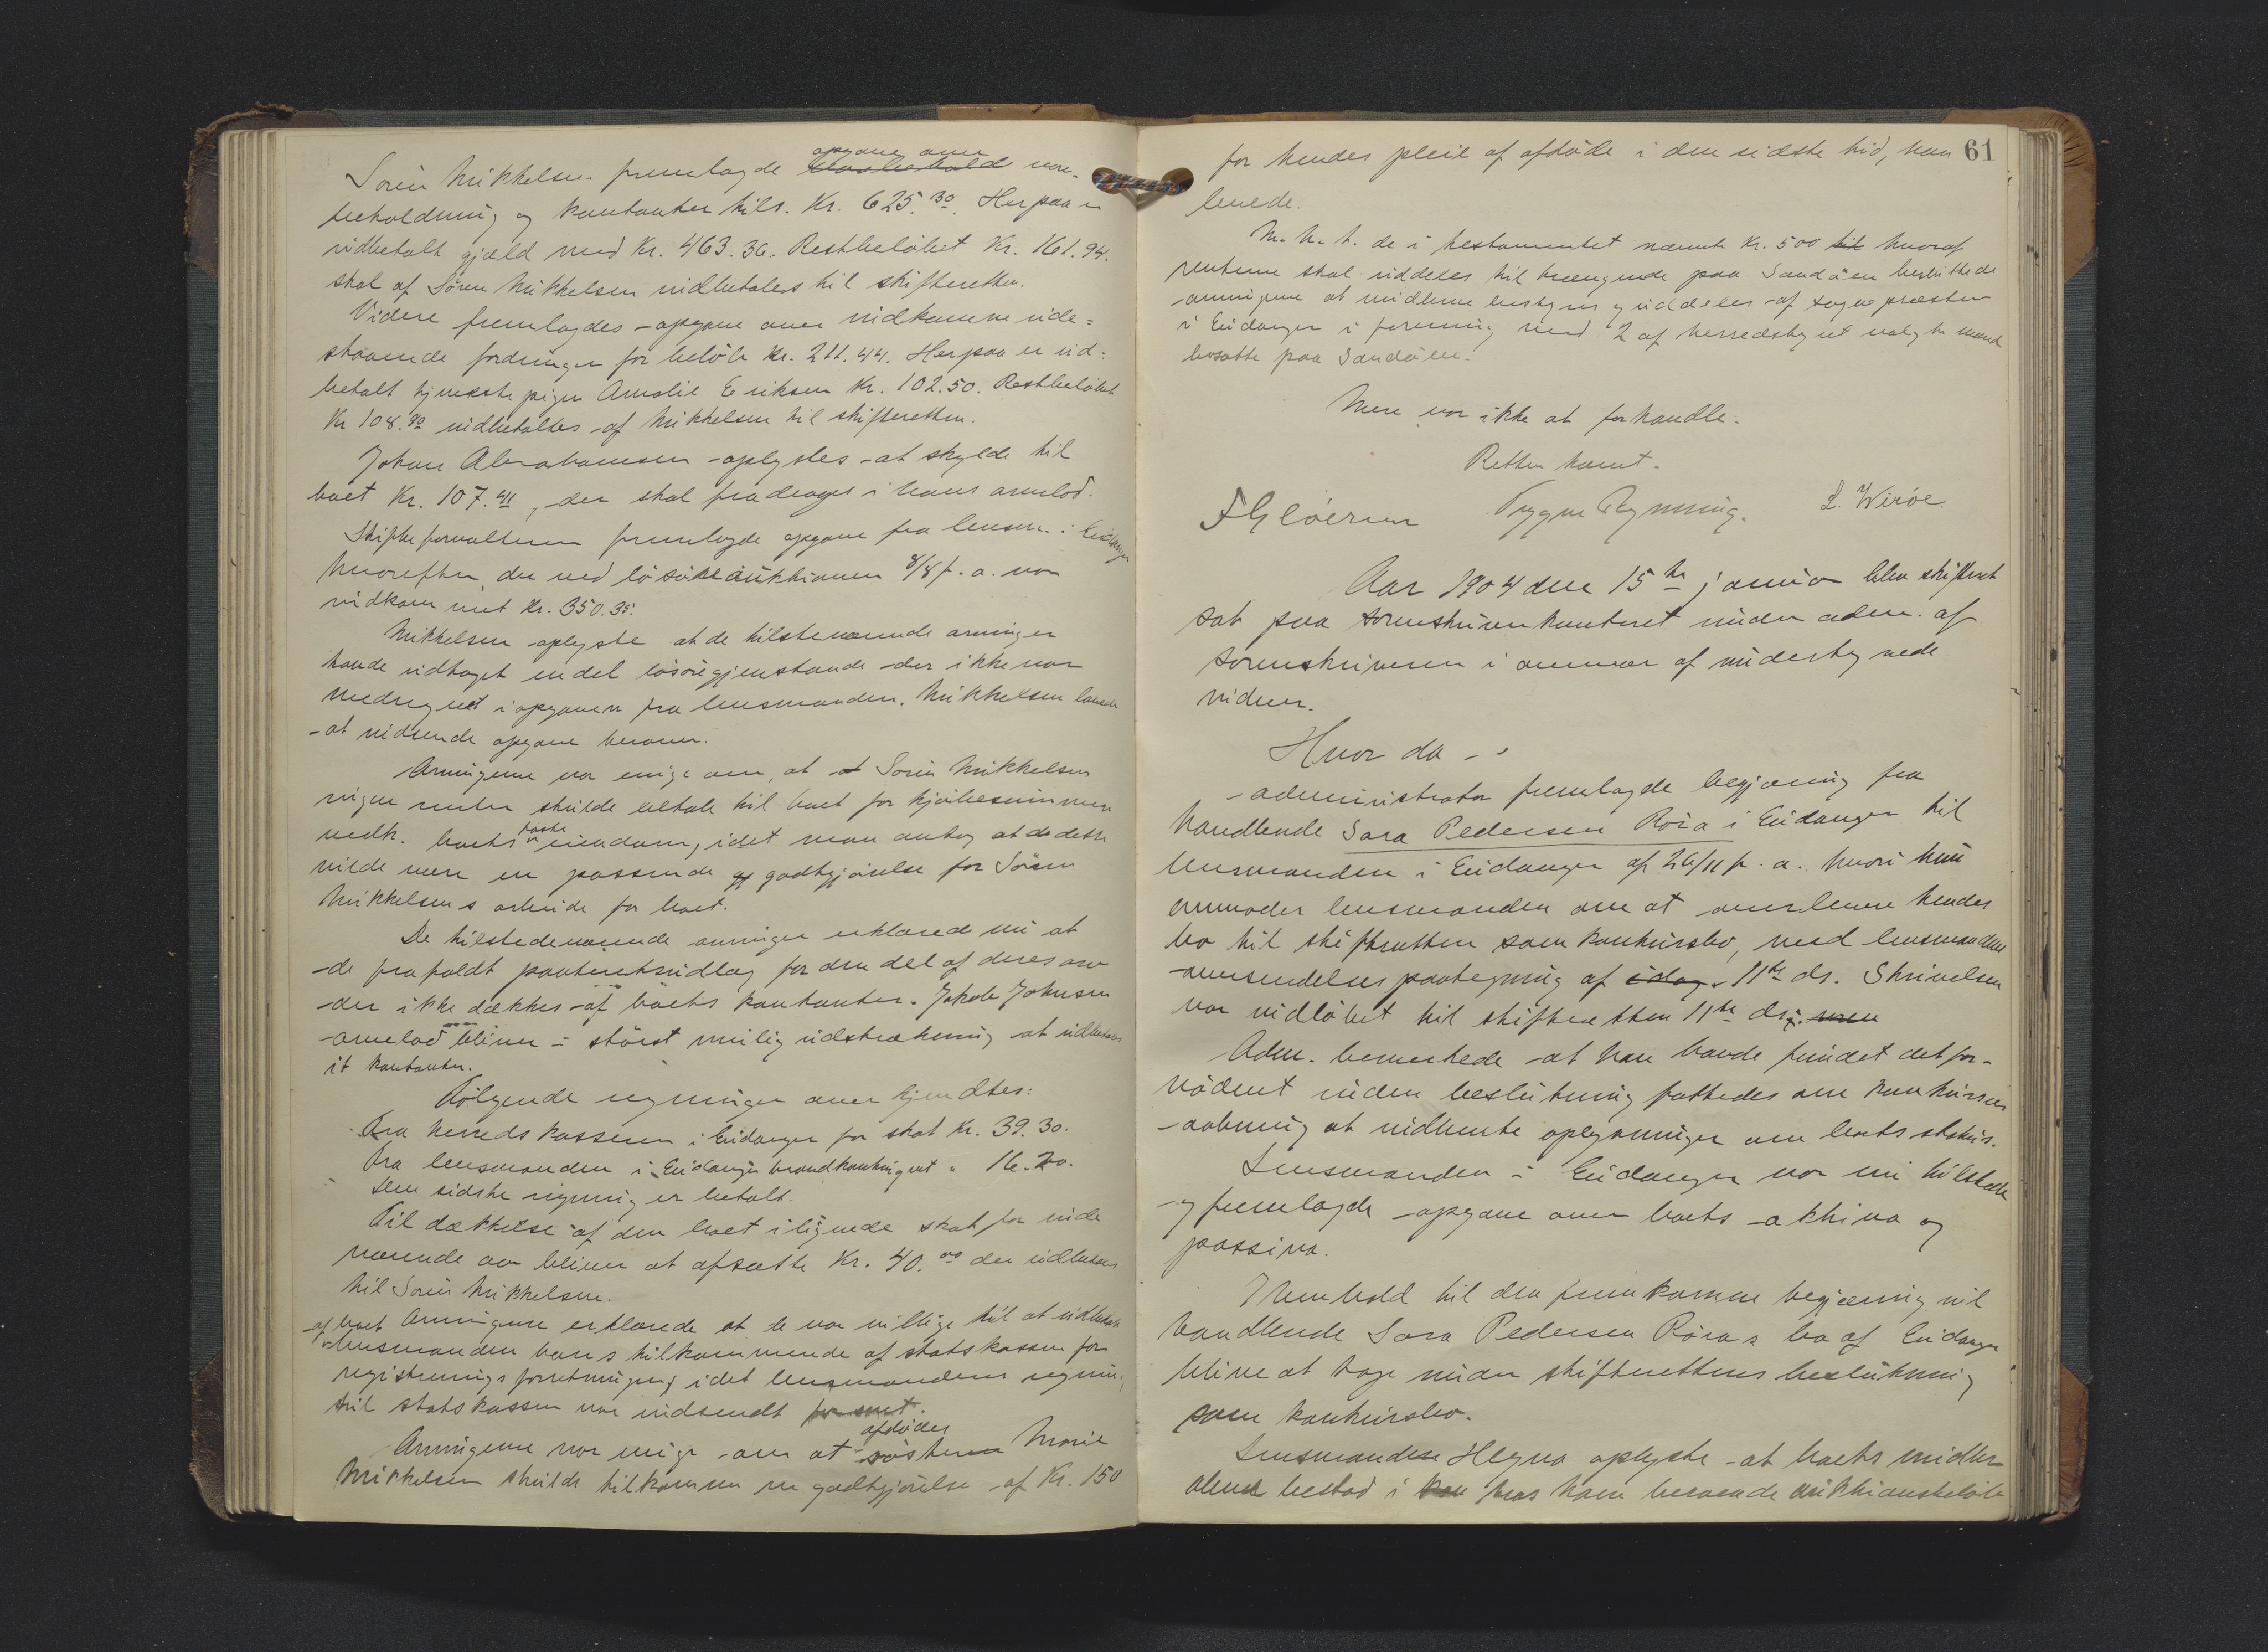 Sørin Mikkelsen fremlagde opgave over vare-
beholdning og kontanter tils. Kr. 625.30. Herpaa er
udbetalt gjæld med Kr. 463.36. Restbeløbet Kr. 161.94.
skal af Sören Mikkelsen indbetales til skifteretten.
Videre fremlagdes opgave over indkomne ude-
staaende fordringer for beløb Kr. 211.44. Herpaa er ud-
betalt tjenestepigen Amalie Eriksen Kr. 102.50. Restbeløbet
Kr 108.90 indbetaltes af Mikkelsen til skifteretten.
Johan Abrahamsen oplystes at skylde til
boet Kr. 107.41, der skal fradrages i hans arvelod.
Skifteforvalteren fremlagde opgave fra lensm. i Eidanger
hvorefter der ved løsøreauktionen 8/8 f. a. var
indkommet Kr. 350.35.
Mikkelsen oplyste at de tilstedeværende arvinger
havde udtaget en del løsøregjenstande der ikke var
medregnet i opgaven fra lensmanden. Mikkelsen lovede
at indsende opgave herover.
Arvingerne var enige om, at Sørin Mikkelsen
ingen renter skulde betale til boet for kjøbesummen
vedk. boets faste eiendom, idet man antog at dette
vilde være en passende godtgjørelse for Sörin
Mikkelsens arbeide for boet.
De tilstedeværende arvinger erklærede nu at
de frafaldt panteretsudlæg for den del af deres arv
der ikke dækkes af boets kontanter. Jakob Johnsens
arvelod bliver i størst mulig udstrækning at udbetale
i kontanter.
Følgende regninger anerkjendtes:
Fra herredskasseren i Eidanger for skat Kr. 39.30.
Fra lensmanden i Eidanger brandkontingent " 16.20.
Den sidste regning er betalt.
Til dækkelse af den boet ilignede skat for inde
værende aar bliver at afsætte Kr. 40.00 der udbetales
til Sørin Mikkelsen.
Arvingerne erklærede at de var villige til at udbetale
af boet lensmanden hans tilkommende af statskassen for
registreringsforretningen, idet lensmandens regning
til statskassen var indsendt for sent.
Arvingerne var enige om at afdødes søster Marie
Mikkelsen skulde tilkomme en godtgjørelse af Kr. 150
61
for hendes pleie af afdøde i den sidste tid, han
levede.
M. h. t. de i testamentet nævnte Kr. 500 hvoraf
renterne skal uddeles til trængende paa Sandøen besluttede
arvingerne at midlerne bestyres og uddeles af sognepræsten
i Eidanger i forening med 2 af herredstyret valgte mænd
bosatte paa Sandøen.
Mere var ikke at forhandle.
Retten hævet.
F Gløersen Trygve Rynning. L. Wirøe.
Aar 1904 den 15de januar blev skifteret
sat paa sorenskriverkontoret under adm. af
sorenskriveren i overvær af undertegnede
vidner.
Hvor da -:
administrator fremlagde begjæring fra
handlende Sara Pedersen Røra i Eidanger til
lensmanden i Eidanger af 26/11 f. a. hvori hun
anmoder lensmanden om at overlevere hendes
bo til skifteretten som konkursbo, med lensmandens
oversendelsespaategning af idag 11te ds. Skrivelsen
var indløbet til skifteretten 11te ds.
Adm. bemerkede at han havde fundet det for-
nødent inden beslutning fattedes om konkursens
aabning at indhente oplysninger om boets status.
Lensmanden i Eidanger var nu tilstede
og fremlagde opgave over boets aktiva og
passiva.
I henhold til den fremkomne begjæring vil
handlende Sara Pedersen Røras bo af Eidanger
blive at tage under skifterettens beslutning
som konkursbo.
Lensmanden Hegna oplyste at boets midler
alene bestod i hos ham beroende auktionsbeløb